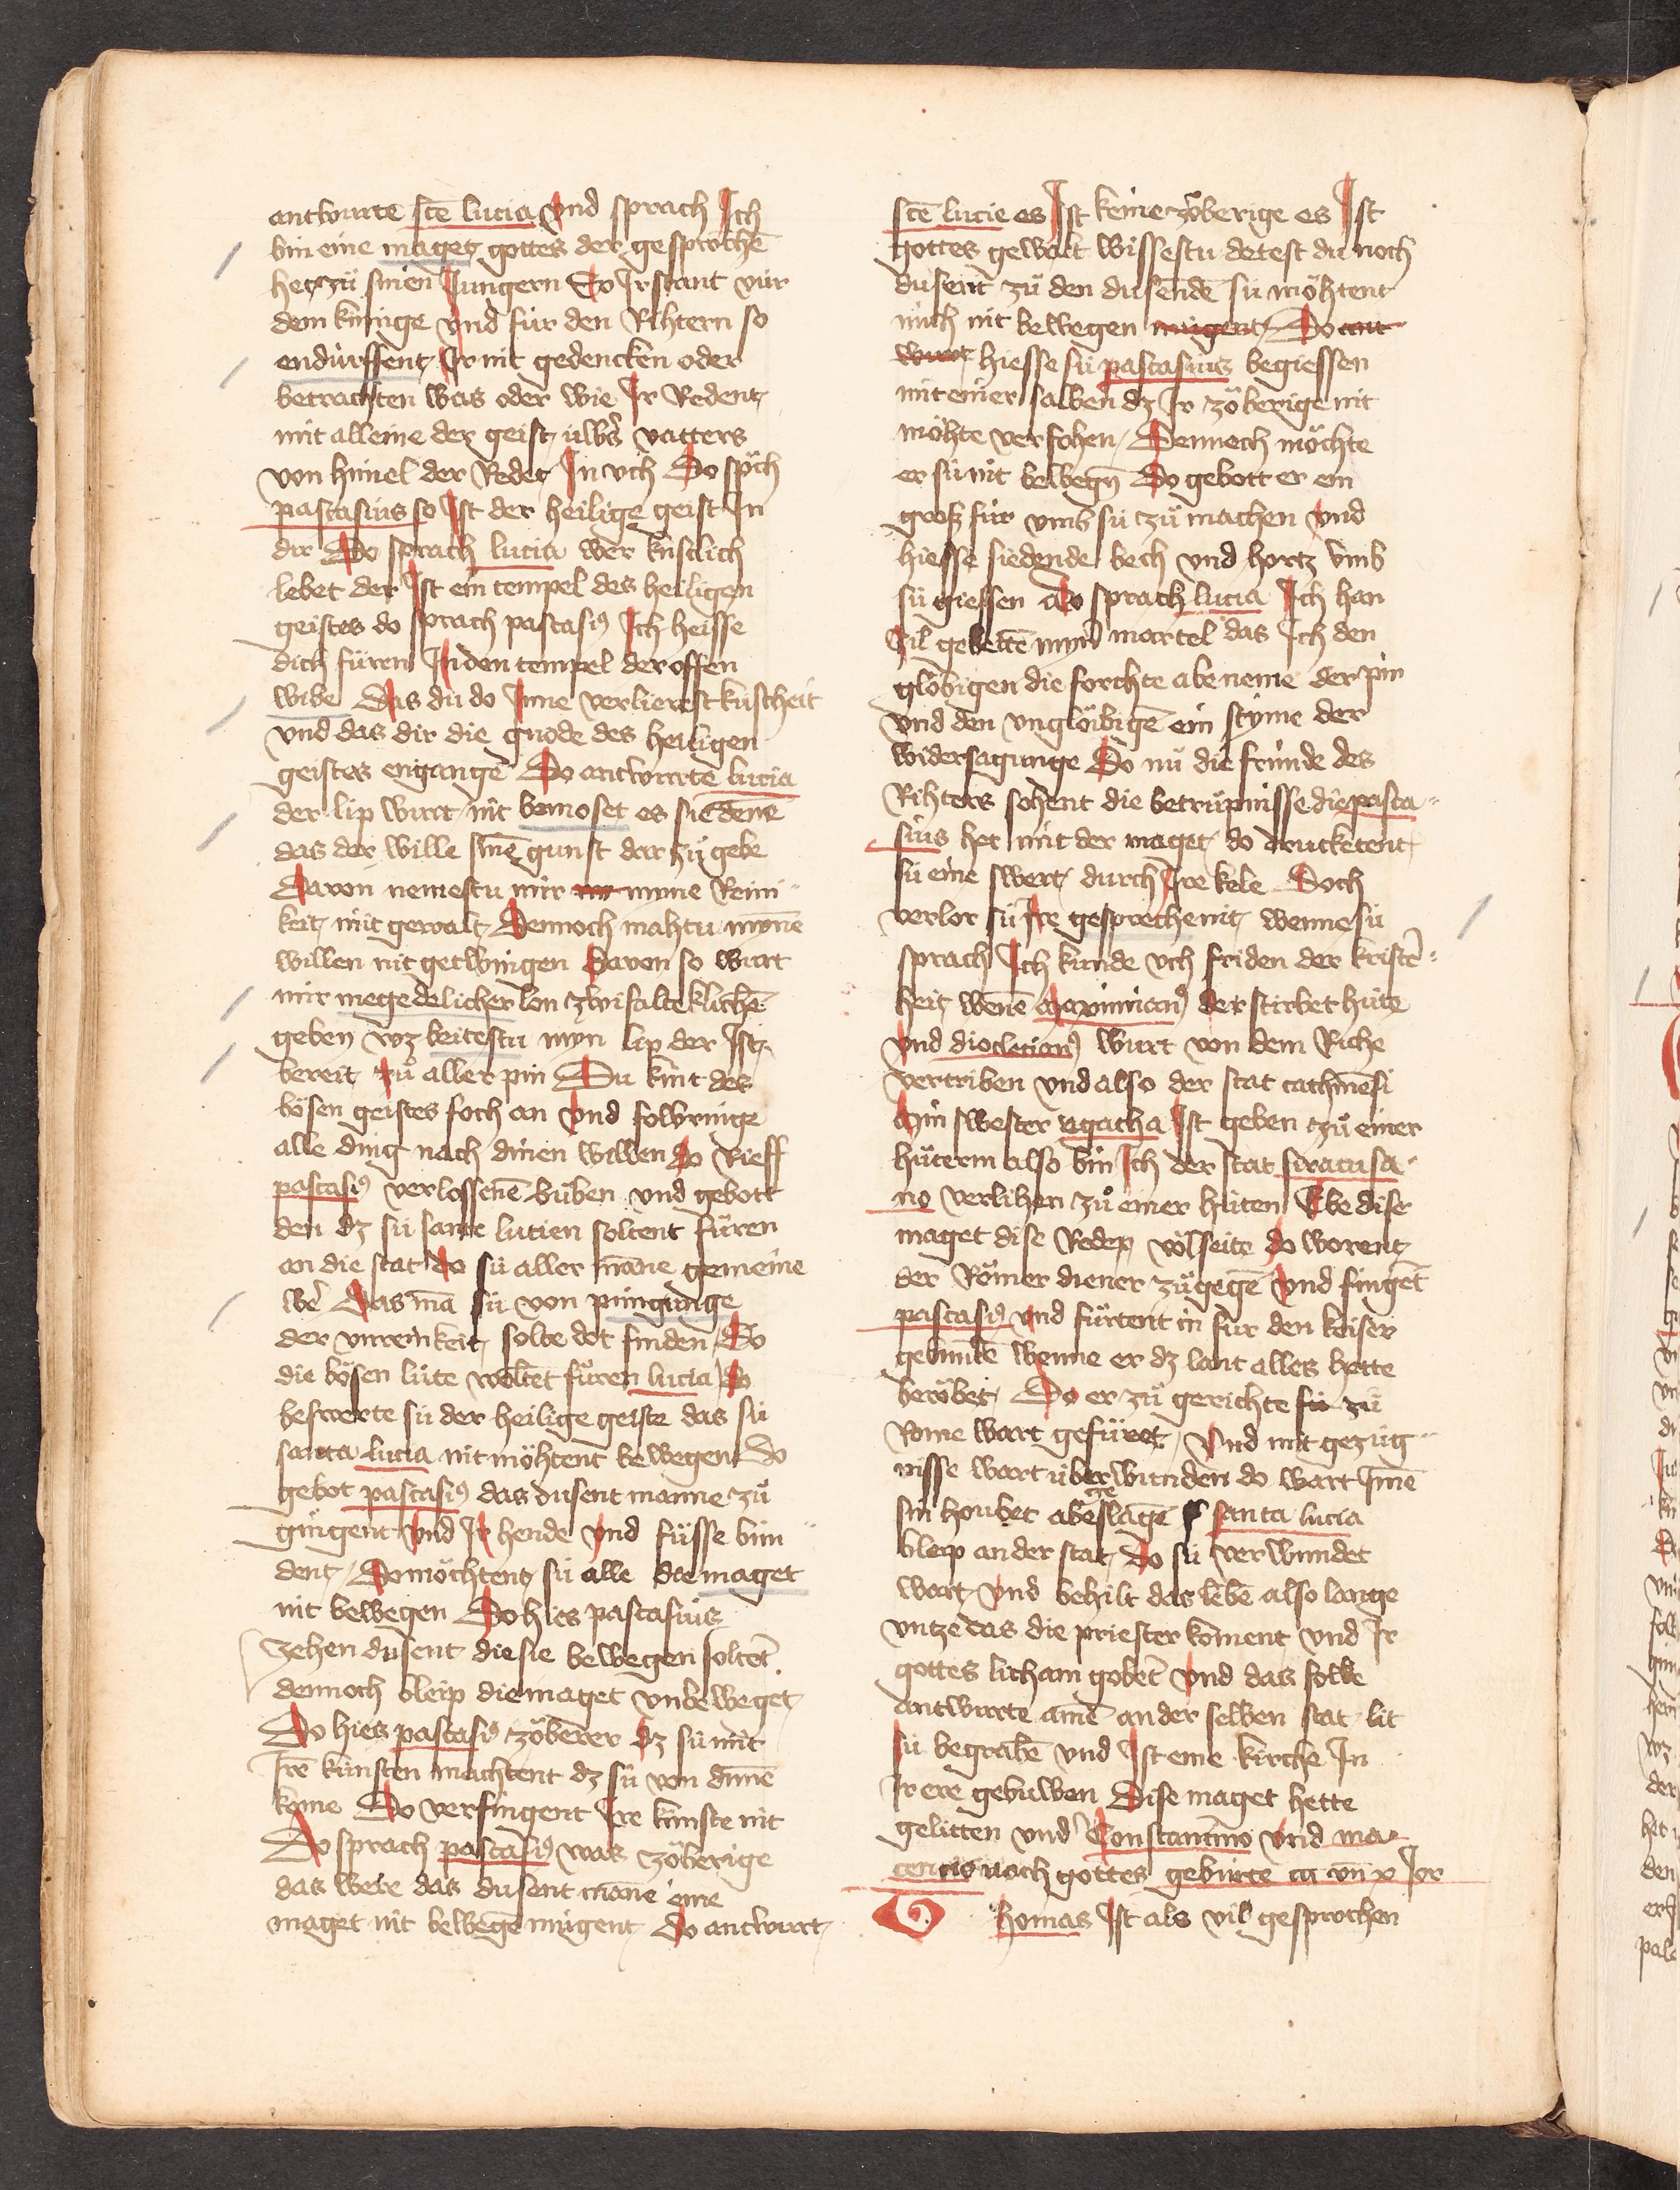 antwurte stē lucia vnd sprach Ich
bin eine maget gottes der gesprochē
het zů sinen Jungern So Ir stant vür
dem künige vnd für den Rihtern so
endürffent Ir nit gedencken oder
betrachten was oder wie Ir Redent
mit alleine der geist uwers vatters
von himel der Redet In vch Do sprͣch
pastasius so Ist der heilige geist In
dir Do sprach lucia wer kuslich
lebet der Ist ein tempel des heiligen
geistes do sprach pastasiꝰ Ich heisse
dich füren In den tempel der offen
wibe Das du do Inne verlierest kuscheit
vnd das dir die gnode des heiligen
geistes engange Do antwurte lucia
der lip wurt nit bemoset es sie denne
das der wille sinē gunst dar zů gebe
Davon nemestu mir myne Reini
keit mit gewalt Dennoch mahtu mynē
willen nit getwingen Davon so wurt
mir megedelicher lon zwifalteklichē
geben wz beitestu myn lip der Ist
bereit zů aller pin Du kint des
bösen geistes foch an vnd folbringe
alle ding nach dinen willen do Rieff
pastasiꝰ verlossenē buben vnd gebott
den dz sü sante lutien soltent füren
an die stat do sü aller māne gemeine
wer Das mā sü von pinigunge
der vnreinkeit solte dot finden Do
die bösen lüte woltēt füren lucia do
beswerte sü der heilige geist das sü
santa lucia nit möhtent bewegen Do
gebot pastasiꝰ das dusent manne zů
gingent vnd Ir hende vnd füsse bun
dent Do möchtent sü alle die maget
nit bewegen Do hies pastasius
Zehen dusent die sie bewegen soltēt
dennoch bleip die maget vnbeweget
Do hies pastasiꝰ zöberer dz sü mit
Irē künsten machtent dz sü von dinnē
kome Do verfingent Ire künste nit
Do sprach pastasiꝰ was zöberige
das were das dusent māne eine
maget nit bewegē mugent do antwurt
stē lucie es Ist keine zöberige es Ist
gottes gewalt wissestu detest du noch
dusent zů den dusendē sü möhtent
mich nit bewegen mugent Do ant
wurt hiesse sü pastasius begiessen
mit einer salben dz Ir zöberige nit
möhte verfohen Dennoch möchte
er sü nit bewegn̄ Do gebott er ein
groß für vmb sü zů machen vnd
hiesse siedende bech vnd hortz vmb
sü giessen do sprach lucia Ich han
vil gebettē mynr martel das Ich den
glöbigen die forchte abe neme der pin
vnd den vnglöibigē ein styme der
widersagunge Do nů die fründe des
Rihters sohent die betrüpnisse die pasta
sius het mit der maget do drucketent
sü eine swert durch Ire kele Doch
verlor sü Ire gespreche nit wenne sü
sprach Ich kunde vch friden der kristē
heit wenē maximianꝰ der stirbet hüte
vnd diocletianꝰ wurt von dem Riche
vertriben vnd also der stat cathinēsi
min swester agatha Ist geben zů einer
hüterin also bin Ich der stat siracusa
no verlihen zů einer hüten E be dise
maget dise Reden volseite do worent
der Römer diener zůgegē vnd fingēt
pastasiꝰ vnd fürtent in für den keiser
gebundē wenne er dz lant alles hette
beröbet Do er zů gerichte für zů
Rome wart gefüret Vnd mit gezüg
nisse wart überwunden do wart Imē
sin houbet abe geslagē santa lucia
bleip an der stat do sü verwundet
wart vnd behilt das lebē also lange
vntze das die priester koment vnd Ir
gottes licham gobēt vnd das folke
antwurte amē an der selben stat lit
sü begrabē vnd Ist eine kirche In
Ir ere gebuwen Dise maget hette
gelitten vnder Constantino vnd ma
cencio noch gottes gebürte
homas Ist als vil gesprochen